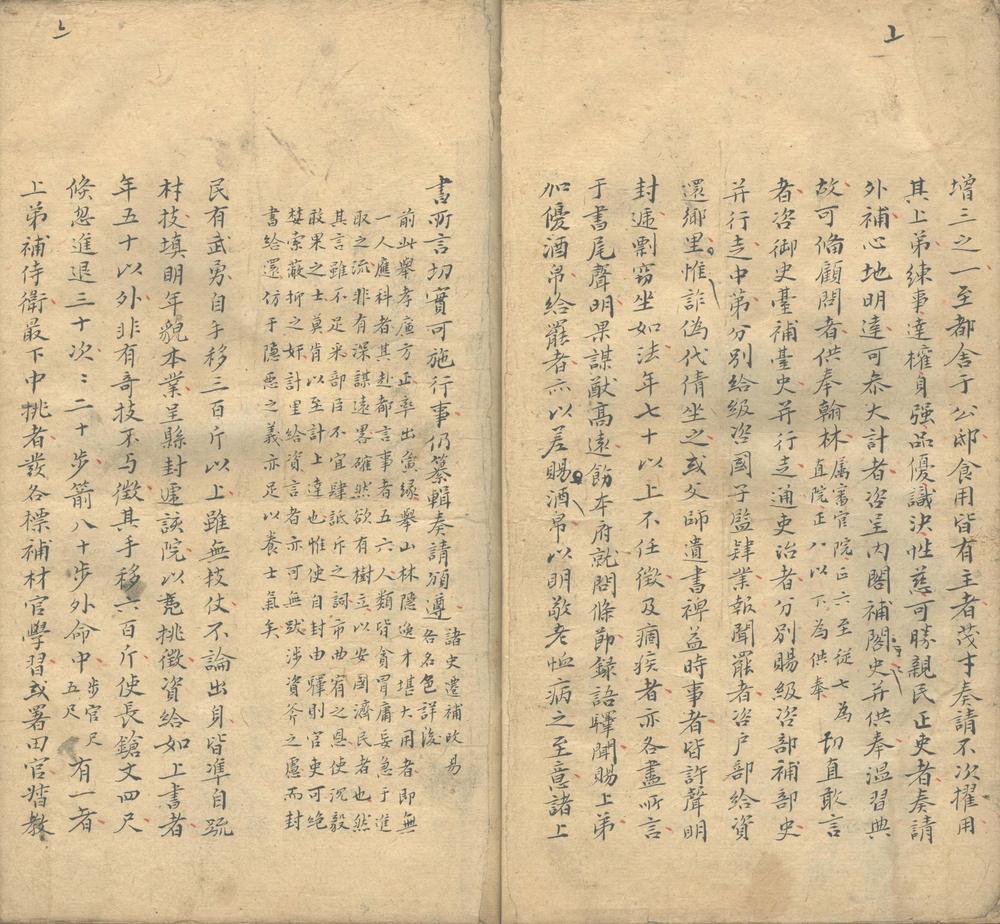 增三之一至都舍于公邸食用皆有主者茂才奏請不次擢用
其上弟練事達權身强品優識決性慈可勝親民正吏者奏請
外補心地明達可叅大計者咨呈内閣補閣史并供奉温習典
故可俻顧問者供奉翰林属審官院正六至從七為切直敢言
直院正八以下為供奉
者咨御史臺補臺史并行走通吏治者分別賜級咨部補部史
并行走中弟分別給級咨國子監肄業報聞罷者咨户部給資
還鄉里惟詐偽代倩坐之或父師遺書裨益時事者皆許聲明
封遞剽竊坐如法年七十以上不任徵及痼疾者亦各盡所言
于書尾聲明果謀猷高遠飭本府就問條節録語驛聞賜上弟
加優酒帛給罷者亦以差賜酒帛以明敬老恤病之至意諸上
書所言切實可施行事仍纂輯奏請頒遵諸史遷補敀易
各名色詳後
前此舉孝廉方正率出夤縁舉山林隱逸才堪大用者即無
一人應科者其赴都言事者五六人類皆貪冒庸妄急于進
取之流非有深謀遠畧確然欲有樹立以安國濟民者也然
其言雖不足采部臣不宜肆詆斥之詞市曲宥之恩使沉毅
敢果之士莫肯以至計上達也惟使自封由驛則官吏可绝
婪索蔽抑之奸計里給資言者亦可無跋涉資斧之慮而封
書給還仿于隱惡之義亦足以養士氣矣
民有武勇自手移三百斤以上雖無技仗不論出身皆準自䟽
村技填明年貌本業呈縣封遞該院以竟挑徵資給如上書者
年五十以外非有奇技不与徵其手移六百斤使長鎗丈四尺
倐忽進退三十次二二十步箭八十步外命中步官尺五尺有一者
上弟補侍衛最下中挑者發各標補材官學習或署田官㬱教